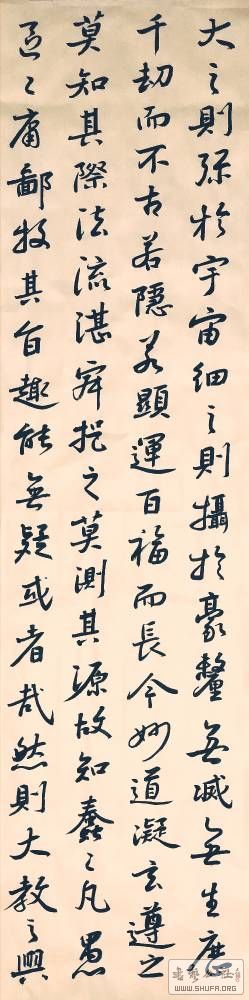 大之則弥於宇宙細之則攝於豪釐無滅無生歷
千劫而不古若隱若顯運百福而長今妙道凝玄遵之
莫知其際法流湛寂挹之莫測其源故知蠢々凡愚
區々庸鄙投其旨趣能無疑或者哉然則大教之興
WWW.SHUFA.ORG